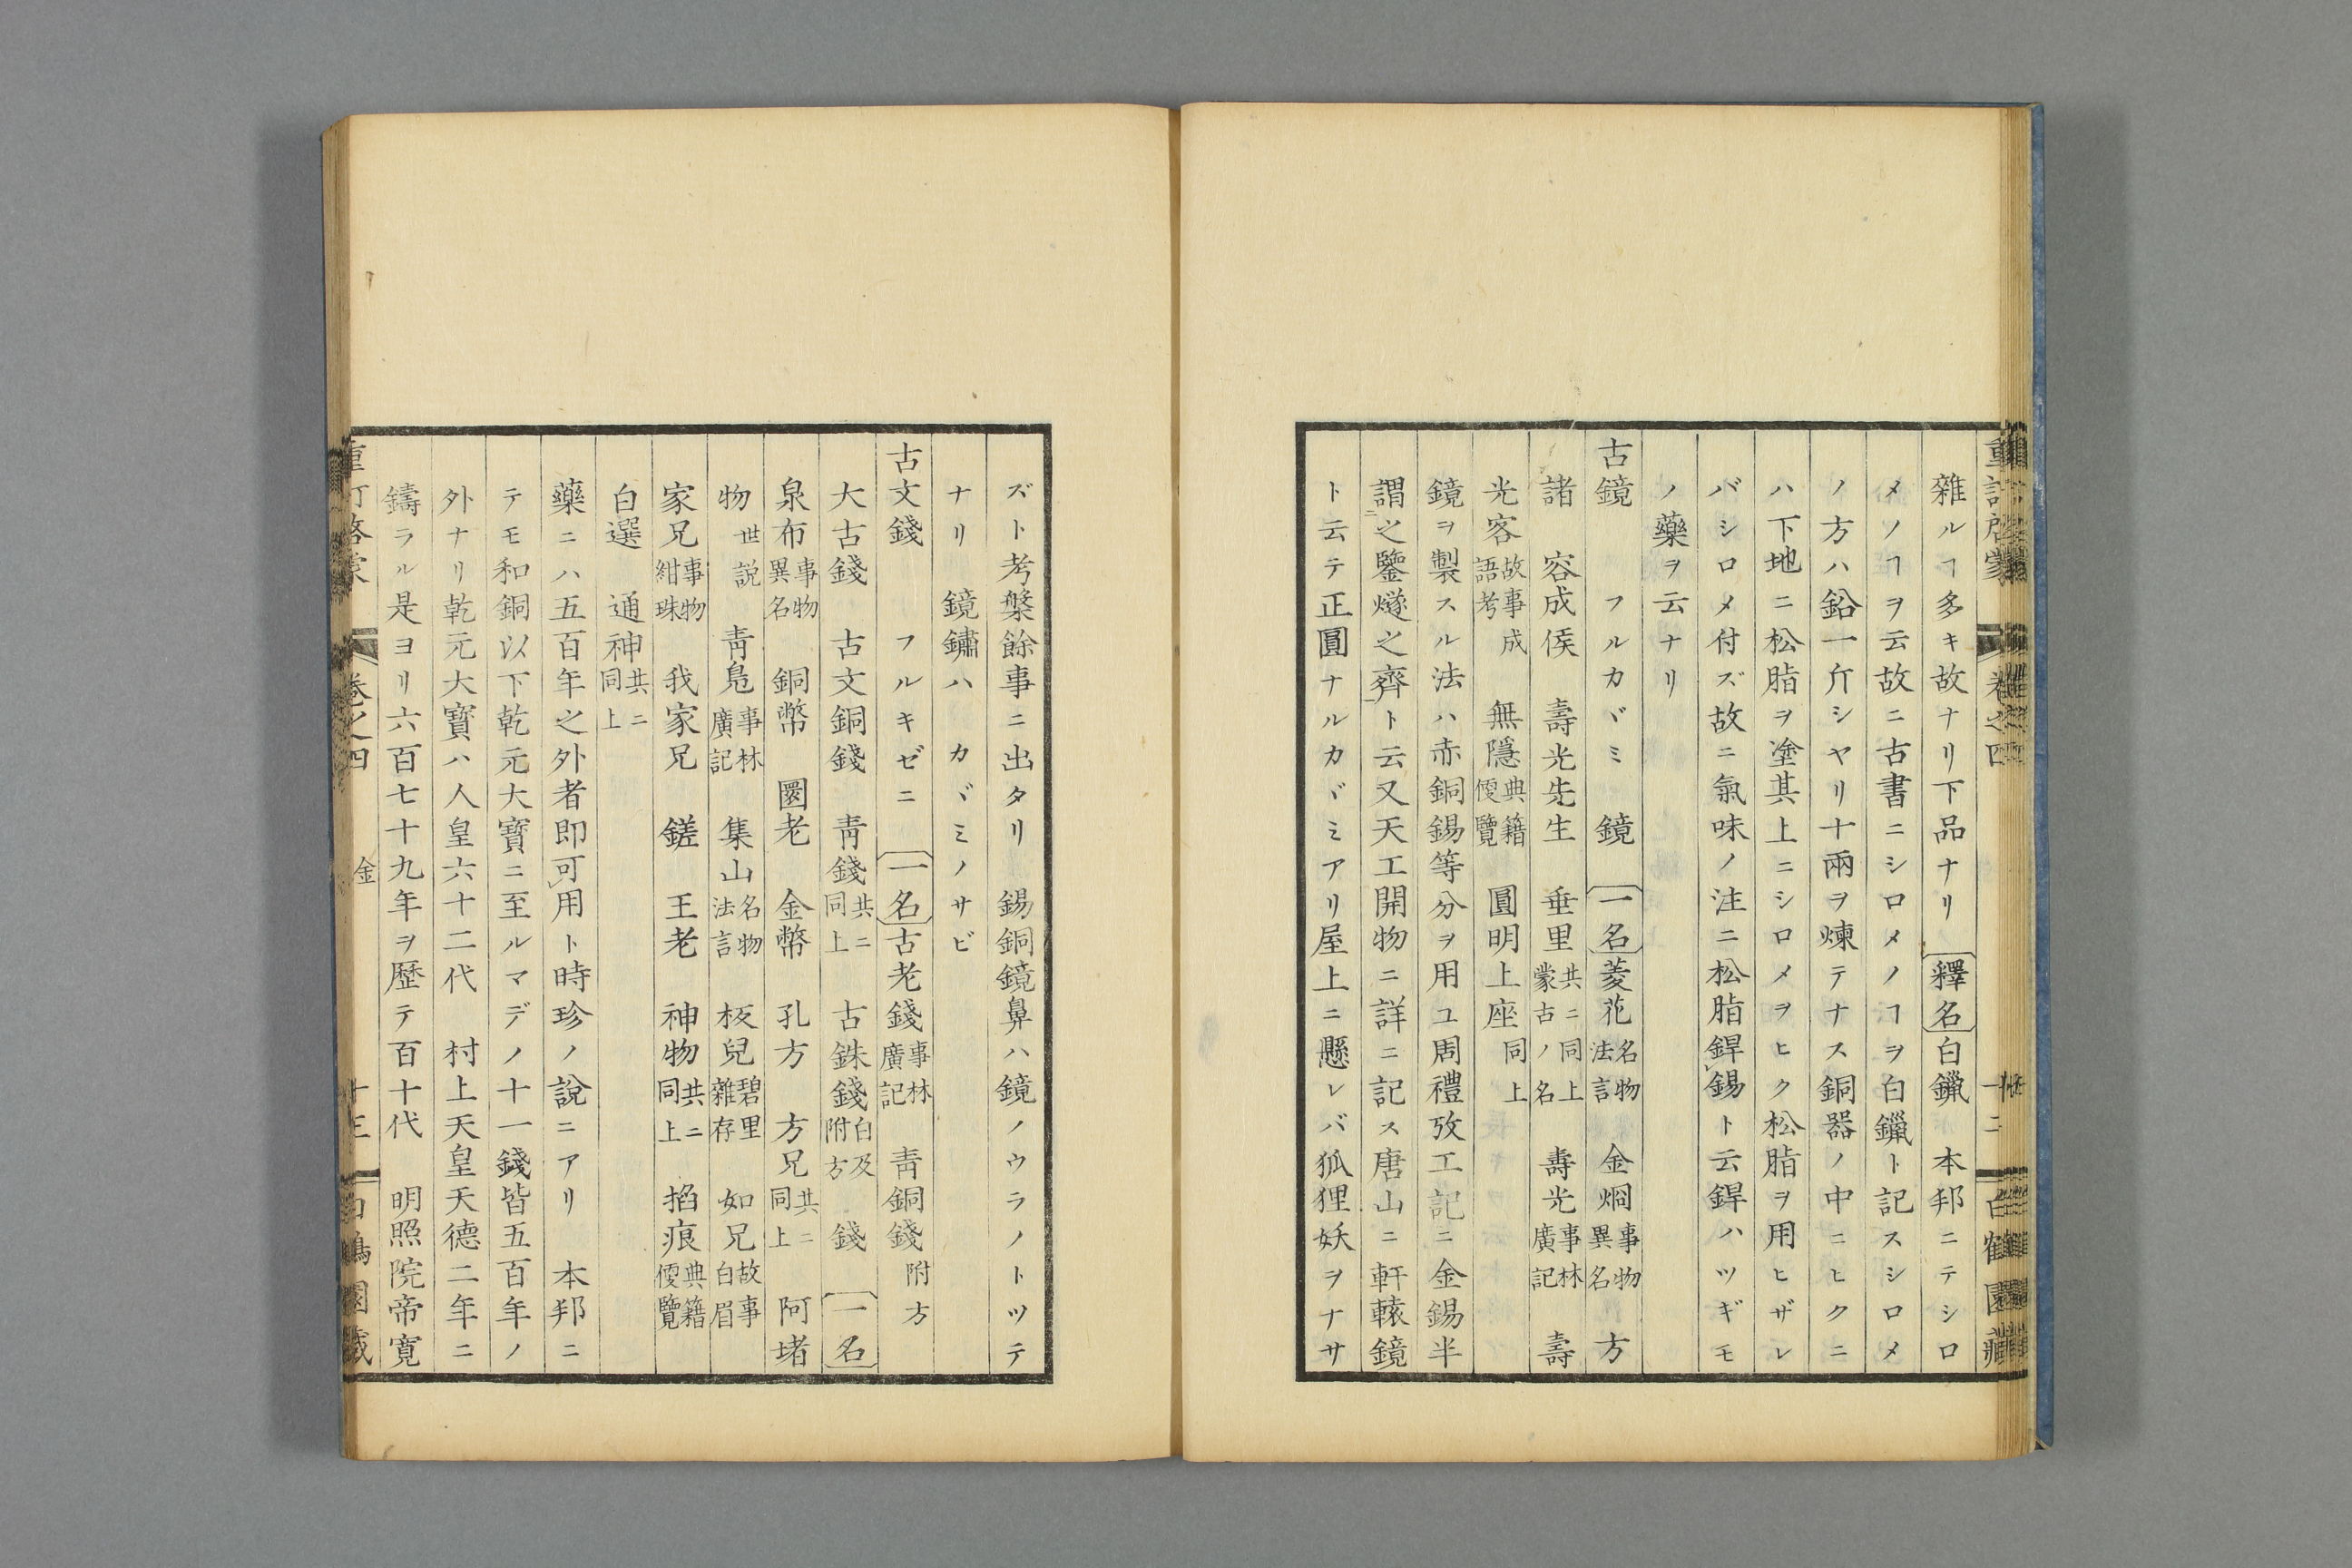 雜ルヿ多キ故ナリ下品ナリ 釋名 白鑞 本邦ニテシロ
メノヿヲ云故ニ古書ニシロメノヿヲ白鑞ト記スシロメ
ノ方ハ鉛一斤シヤリ十兩ヲ煉テナス銅器ノ中ニヒクニ
ハ下地ニ松脂ヲ塗其上ニシロメヲヒク松脂ヲ用ヒザレ
バシロメ付ズ故ニ氣味ノ注ニ松脂銲錫ト云銲ハツギモ
ノ藥ヲ云ナリ
古鏡 フルカヾミ 鏡 一名 菱花名物法言 金烱事物異名 方
諸 容成侯 壽光先生 垂里共ニ同上蒙古ノ名 壽光事林廣記 壽
光客故事成語考 無隱典籍便覽 圓明上座同上
鏡ヲ製スル法ハ赤銅錫等分ヲ用ユ周禮攷工記ニ金錫半
謂之鑒燧之齊ト云又天工開物ニ詳ニ記ス唐山ニ軒轅鏡
ト云テ正圓ナルカヾミアリ屋上ニ懸レバ狐狸妖ヲナサ
ズト考槃餘事ニ出タリ 錫銅鏡鼻ハ鏡ノウラノトツテ
ナリ 鏡鏽ハカヾミノサビ
古文錢 フルキゼニ 一名 古老錢事林廣記 靑銅錢附方
大古錢 古文銅錢 靑錢共ニ同上 古銖錢白及附方 錢 一名
泉布事物異名 銅幣 圜老 金幣 孔方 方兄共ニ同上 阿堵
物世説 靑鳧事林廣記 集山名物法言 板兒碧里雜存 如兄故事白眉
家兄事物紺珠 我家兄 鎈 王老 神物共ニ同上 掐痕典籍便覽
白選 通神共ニ同上
藥ニハ五百年之外者即可用ト時珍ノ說ニアリ 本邦ニ
テモ和銅以下乾元大寶ニ至ルマデノ十一錢皆五百年ノ
外ナリ乾元大寶ハ人皇六十二代 村上天皇天德二年ニ
鑄ラル是ヨリ六百七十九年ヲ歷テ百十代 明照院帝寛
卷之四 金